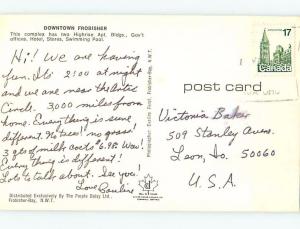 DOWNTOWN FROBISHER
This complex has two Highrise Apt. Bldgs., Gov't
offices, Hotel, Stores, Swimming Pool.
Hi! We are having
fun. It's 2:00 at night
and we are near the Artic
Circle. 3,000 miles from
home. Everything is sure
different. No trees! no grass!
3 qts of milk costs $6.98. Wow!
Everything is different!
Lots to talk about. See you.
Love Pauline
Distributed Exclusively By The People Daisy Ltd.,
Frobisher-Bay, N.W.T.
17
Canada
post card
Victoria Baker
509 Stanley Avenue
Leon, Io. 50060
U.S.A.